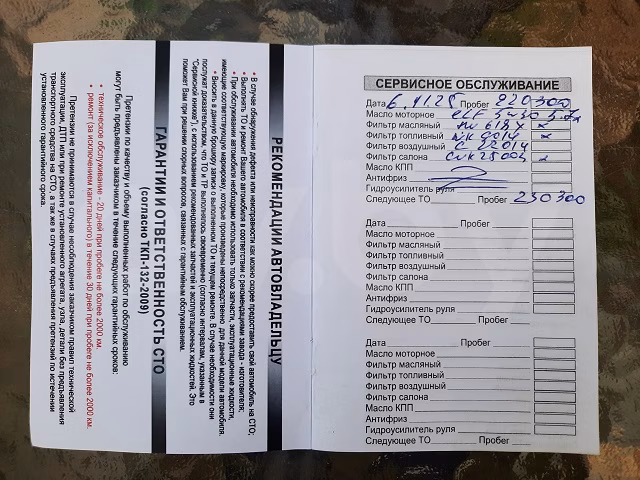 РЕКОМЕНДАЦИИ АВТОВЛАДЕЛЬЦУ
• В случае обнаружения дефекта или неисправности как можно скорее предоставить свой автомобиль на СТО;
• Выполнять ТО и ремонт Вашего автомобиля в соответствии с рекомендациями завода - изготовителя;
• При обслуживании автомобиля необходимо использовать только запчасти, эксплуатационные жидкости,
имеющие соответствующую маркировку, которые произведены непосредственно для данной модели автомобиля.
• Вносить в данную брошюру записи о выполненном ТО и текущем ремонте. В случае необходимости они
послужат доказательством, что ТО и ТР выполнялось своевременно (согласно интервалам, указанным в
"Сервисной книжке"), с использованием рекомендованных запчастей и эксплуатационных жидкостей. Это
поможет Вам при решении спорных вопросов, связанных с гарантийным обслуживанием.
ГАРАНТИИ И ОТВЕТСТВЕННОСТЬ СТО
(согласно ТКП-132-2009)
Претензии по качеству и объему выполненных работ по обслуживанию
могут быть предъявлены заказчиком в течение следующих гарантийных сроков:
• техническое обслуживание - 20 дней при пробеге не более 2000 км.
• ремонт (за исключением капитального) в течение 30 дней при пробеге не более 2000 км.
Претензии не принимаются в случае несоблюдения заказчиком правил технической
эксплуатации, ДТП или при ремонте установленного агрегата, узла, детали без предъявления
транспортного средства на СТО, а так же в случаях предъявления претензий по истечении
установленного гарантийного срока.
СЕРВИСНОЕ ОБСЛУЖИВАНИЕ
Дата 6.11.25 Пробег 220300
Масло моторное ELF 5w30
Фильтр масляный
Фильтр топливный
Фильтр воздушный
Фильтр салона
Масло КПП
Антифриз
Гидроусилитель руля
Следующее ТО Пробег 230300
Дата Пробег
Масло моторное
Фильтр масляный
Фильтр топливный
Фильтр воздушный
Фильтр салона
Масло КПП
Антифриз
Гидроусилитель руля
Следующее ТО Пробег
Дата Пробег
Масло моторное
Фильтр масляный
Фильтр топливный
Фильтр воздушный
Фильтр салона
Масло КПП
Антифриз
Гидроусилитель руля
Следующее ТО Пробег